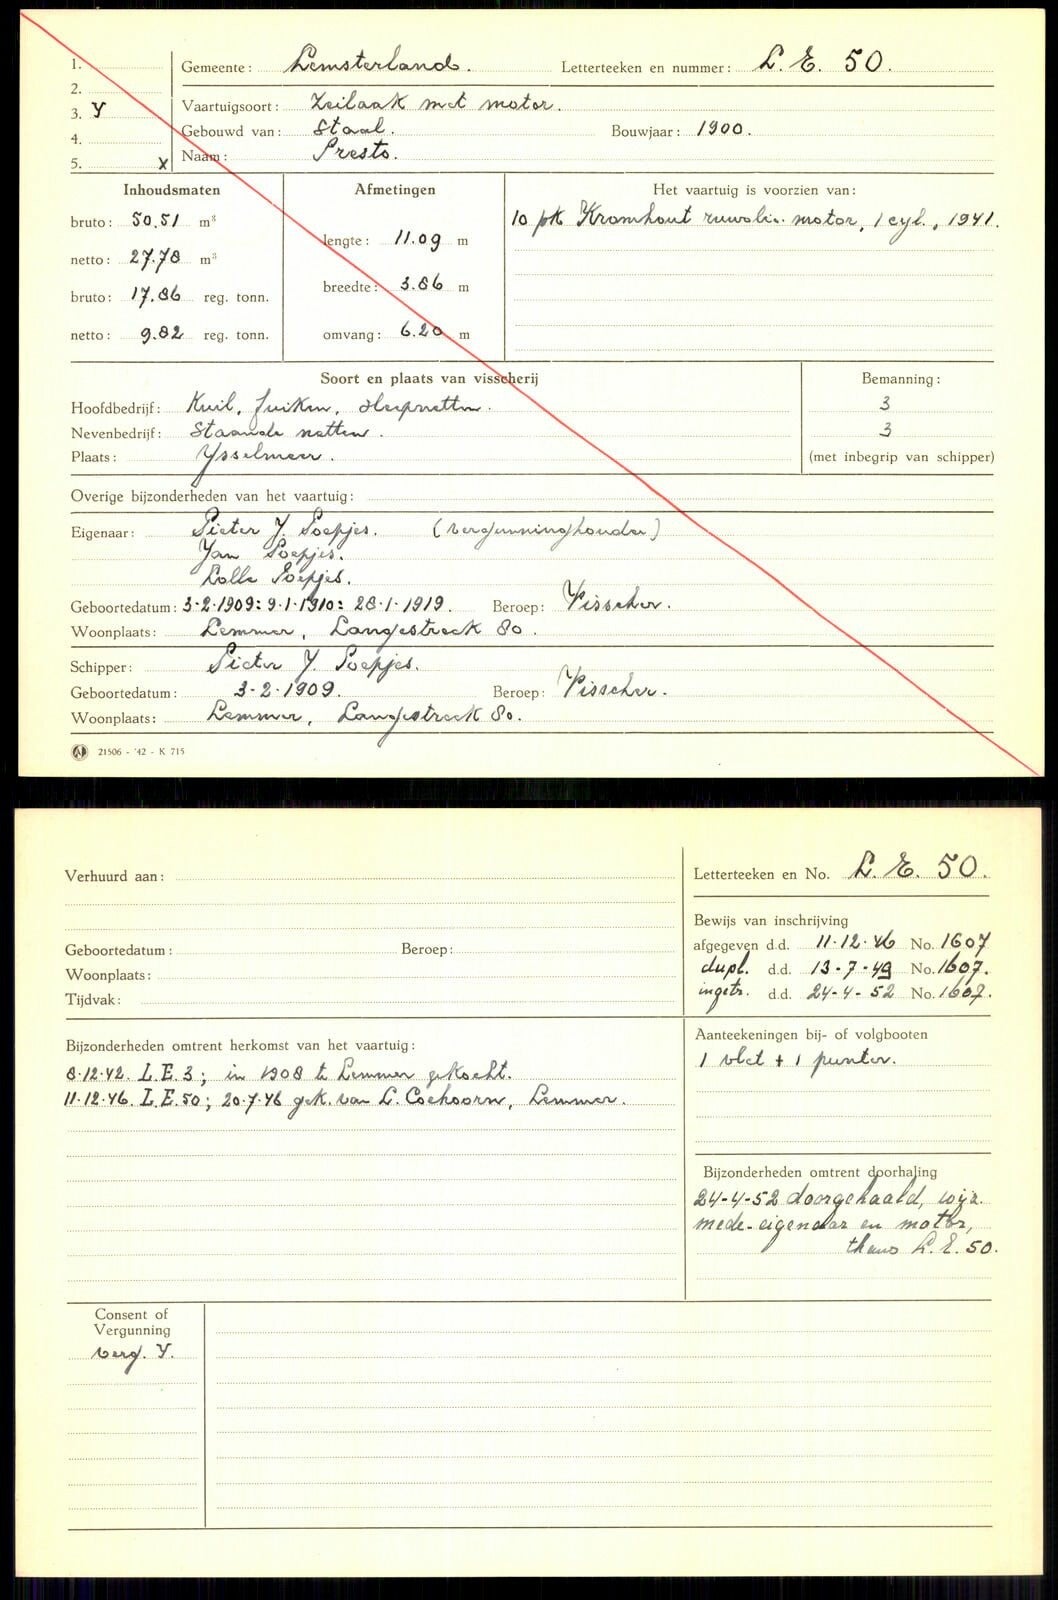 1.
2.
3. Y
4.
5. X
Gemeente: Lemsterland. Letterteeken en nummer: L. E. 50.
Vaartuigsoort: Zeilaak met motor.
Gebouwd van: Staal. Bouwjaar: 1900.
Naam: Presto.
Inhoudsmaten
bruto: 50.51 m³
netto: 27.78 m³
bruto: 17.86 reg. tonn.
netto: 9.82 reg. tonn.
Afmetingen
lengte: 11.09 m
breedte: 3.86 m
omvang: 6.20 m
Het vaartuig is voorzien van:
10 pk Kromhout ruwolie motor, 1 cyl., 1941.
Soort en plaats van visscherij
Hoofdbedrijf: Kuil, fuiken,
Nevenbedrijf: Staande netten.
Plaats: Ysselmeer.
Bemanning:
3
3
(met inbegrip van schipper)
Overige bijzonderheden van het vaartuig:
Eigenaar: Pieter J. Poepjes. (vergunninghouder)
Jan Poepjes.
Lolle Poepjes.
Geboortedatum: 3-2-1909: 9-1-1910: 28-1-1919. Beroep: Visscher.
Woonplaats: Lemmer, Langestreek 80.
Schipper: Pieter J. Poepjes.
Geboortedatum: 3-2-1909. Beroep: Visscher.
Woonplaats: Lemmer, Langestreek 80.
21506 - '42 - K 715
Verhuurd aan:
Geboortedatum: Beroep:
Woonplaats:
Tijdvak:
Letterteeken en No. L. E. 50.
Bewijs van inschrijving
afgegeven d.d. 11-12-46 No. 1607
dupl. d.d. 13-7-49 No. 1607.
ingetr. d.d. 24-4-52 No. 1607.
Bijzonderheden omtrent herkomst van het vaartuig:
8-12-42. L.E. 3; in 1908 te Lemmer gekocht.
11-12-46. L.E. 50; 20-7-46 gek. van L. Coehoorn, Lemmer.
Aanteekeningen bij- of volgbooten
1 vlet + 1 punter.
Bijzonderheden omtrent doorhaling
24-4-52 doorgehaald, wijz.
mede-eigenaar en motor,
thans L. E. 50.
Consent of
Vergunning
verg. Y.